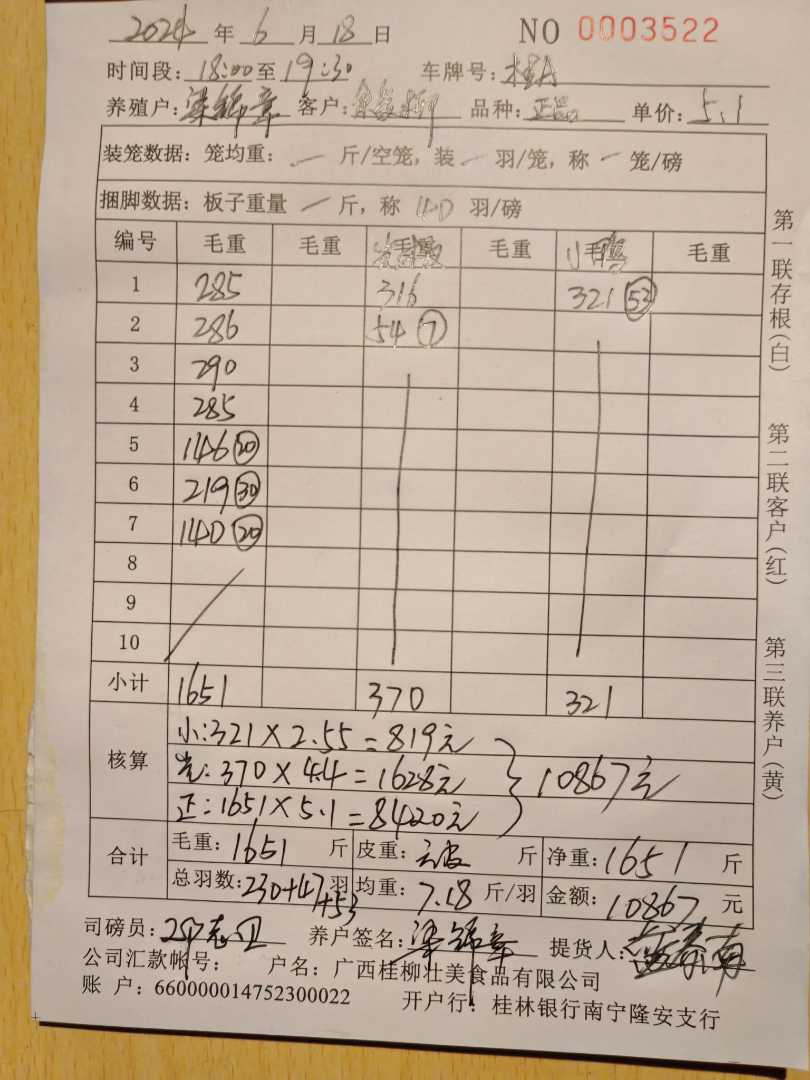 2024 年 6 月 18 日 NO 0003522
时间段: 18:00 至 19:30 车牌号: 桂A
养殖户: 梁锦章 客户: 品种: 正品 单价: 5.1
装笼数据: 笼均重: 一 斤/空笼, 装 一 羽/笼, 称 一 笼/磅
捆脚数据: 板子重量 一 斤, 称 140 羽/磅
编号 毛重 毛重 毛重 毛重 毛重
1 285 316 321 (53)
2 286 54 (7)
3 290
4 285
5 146 (20)
6 219 (30)
7 140 (20)
8
9
10
小计 1651 370 321
核算
小: 321×2.55=819元
光: 370×4.4=1628元
正: 1651×5.1=8420元
10867元
合计
毛重: 1651 斤 皮重: 斤 净重: 1651 斤
总羽数: 230+47+53 羽 均重: 7.18 斤/羽 金额: 10867 元
司磅员: 养户签名: 梁锦章 提货人:
公司汇款帐号: 户名: 广西桂柳壮美食品有限公司
账 户: 660000014752300022 开户行: 桂林银行南宁隆安支行
第一联存根(白) 第二联客户(红) 第三联养户(黄)